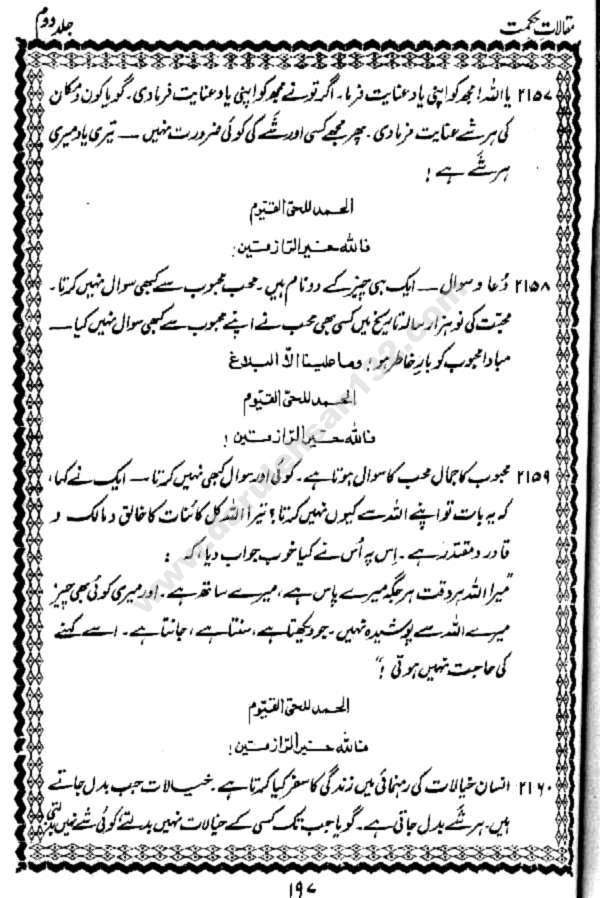 مقالاتِ حکمت
جلد دوم
۲۱۵۷ یا اللہ! مجھ کو اپنی یاد عنایت فرما۔ اگر تو نے مجھ کو اپنی یاد عنایت فرما دی۔ گویا کون و مکان
کی ہر شے عنایت فرما دی۔ پھر مجھے کسی اور شے کی کوئی ضرورت نہیں — تیری یاد میری
ہر شے ہے !
الحمد للحی القیوم
فاللہ خیر الرازقین !
۲۱۵۸ دُعا و سوال — ایک ہی چیز کے دو نام ہیں۔ محب محبوب سے کبھی سوال نہیں کرتا۔
محبت کی نو ہزار سالہ تاریخ میں کسی بھی محب نے اپنے محبوب سے کبھی سوال نہیں کیا —
مبادا محبوب کو بارِ خاطر ہو ! وما علینا الا البلاغ
الحمد للحی القیوم
فاللہ خیر الرازقین !
۲۱۵۹ محبوب کا جمال محب کا سوال ہوتا ہے۔ کوئی اور سوال کبھی نہیں کرتا — ایک نے کہا،
کہ یہ بات تو اپنے اللہ سے کیوں نہیں کرتا؟ تیرا اللہ کل کائنات کا خالق و مالک و
قادر و مقتدر ہے۔ اِس پہ اُس نے کیا خوب جواب دیا، کہ :
"میرا اللہ ہر وقت ہر جگہ میرے پاس ہے، میرے ساتھ ہے۔ اور میری کوئی بھی چیز
میرے اللہ سے پوشیدہ نہیں۔ جو دیکھتا ہے، سنتا ہے، جانتا ہے۔ اسے کہنے
کی حاجت نہیں ہوتی !"
الحمد للحی القیوم
فاللہ خیر الرازقین !
۲۱۶۰ انسان خیالات کی رہنمائی میں زندگی کا سفر کیا کرتا ہے۔ خیالات جب بدل جاتے
ہیں۔ ہر شے بدل جاتی ہے۔ گویا جب تک کسی کے خیالات نہیں بدلتے کوئی شے نہیں بدلتی
۱۹۷